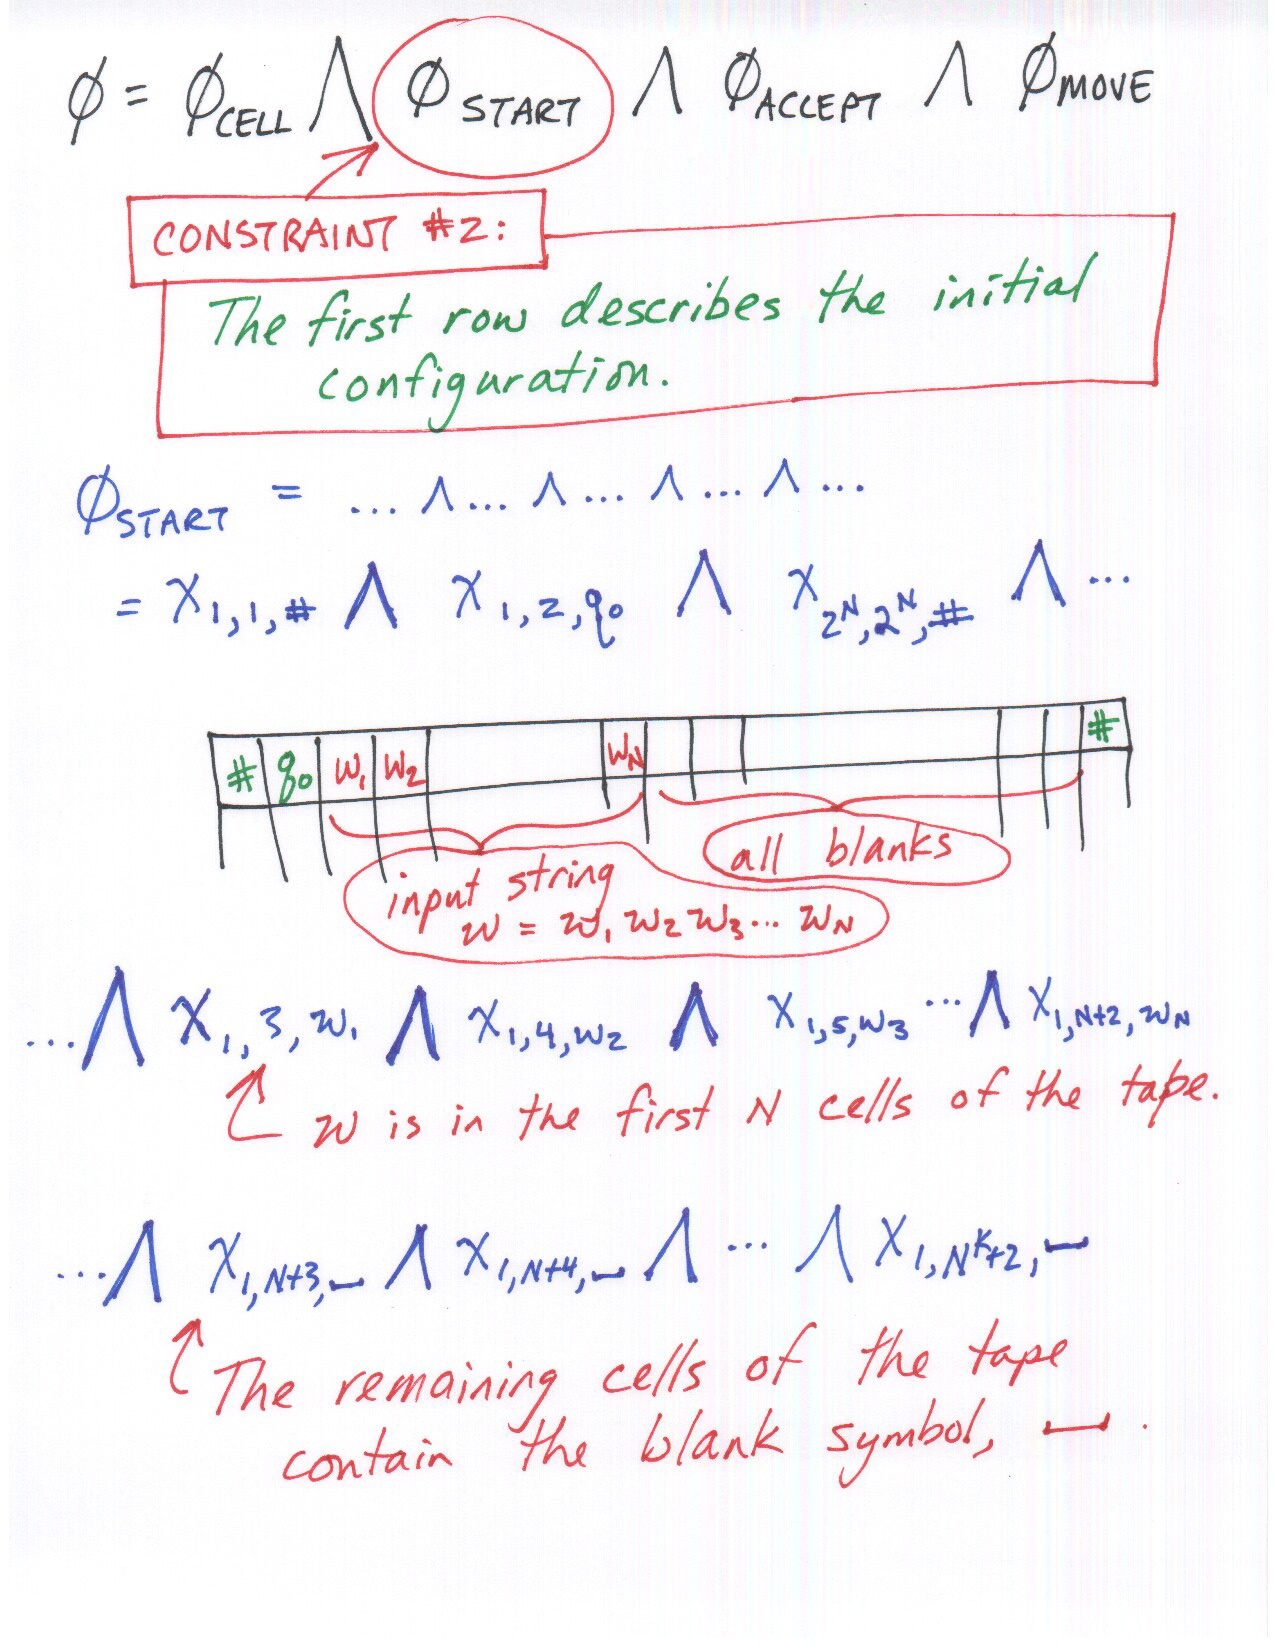 ϕ = ϕCELL ∧ ϕSTART ∧ ϕACCEPT ∧ ϕMOVE
CONSTRAINT #2:
The first row describes the initial
configuration.
ϕSTART = ... ∧ ... ∧ ... ∧ ... ∧ ...
= x₁,₁,# ∧ x₁,₂,q₀ ∧ x_{2^N,2^N,#} ∧ ...
# q₀ w₁ w₂ wN #
all blanks
input string
w = w₁ w₂ w₃ ... wN
... ∧ x₁,₃,w₁ ∧ x₁,₄,w₂ ∧ x₁,₅,w₃ ... ∧ x₁,N+2,wN
w is in the first N cells of the tape.
... ∧ x₁,N+3,⎵ ∧ x₁,N+4,⎵ ∧ ... ∧ x_{1,N^k+2,⎵}
The remaining cells of the tape
contain the blank symbol, ⎵ .